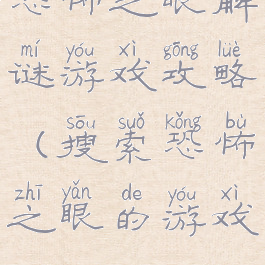 恐怖之眼解
mí yóu xì gōng lüè
谜游戏攻略
sōu suǒ kǒng bù
(搜索恐怖
zhī yǎn de yóu xì
之眼的游戏